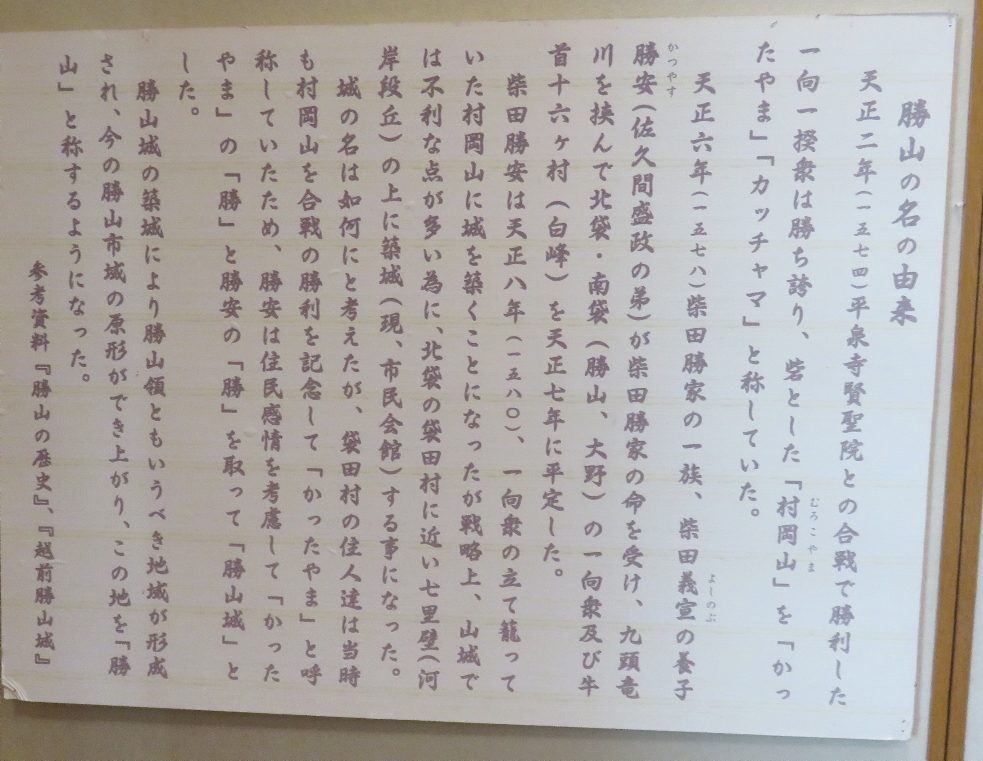 勝山の名の由来
天正二年(一五七四)平泉寺賢聖院との合戦で勝利した
一向一揆衆は勝ち誇り、砦とした「村岡山」を「かっ
むろこやま
たやま」「カッチャマ」と称していた。
天正六年(一五七八)柴田勝家の一族、柴田義宣の養子
よしのぶ
勝安(佐久間盛政の弟)が柴田勝家の命を受け、九頭竜
かつやす
川を挟んで北袋・南袋(勝山、大野)の一向衆及び牛
首十六ヶ村(白峰)を天正七年に平定した。
柴田勝安は天正八年(一五八〇)、一向衆の立て籠って
いた村岡山に城を築くことになったが戦略上、山城で
は不利な点が多い為に、北袋の袋田村に近い七里壁(河
岸段丘)の上に築城(現、市民会館)する事になった。
城の名は如何にと考えたが、袋田村の住人達は当時
も村岡山を合戦の勝利を記念して「かったやま」と呼
称していたため、勝安は住民感情を考慮して「かった
やま」の「勝」と勝安の「勝」を取って「勝山城」と
した。
勝山城の築城により勝山領ともいうべき地域が形成
され、今の勝山市城の原形ができ上がり、この地を「勝
山」と称するようになった。
参考資料『勝山の歴史』、『越前勝山城』